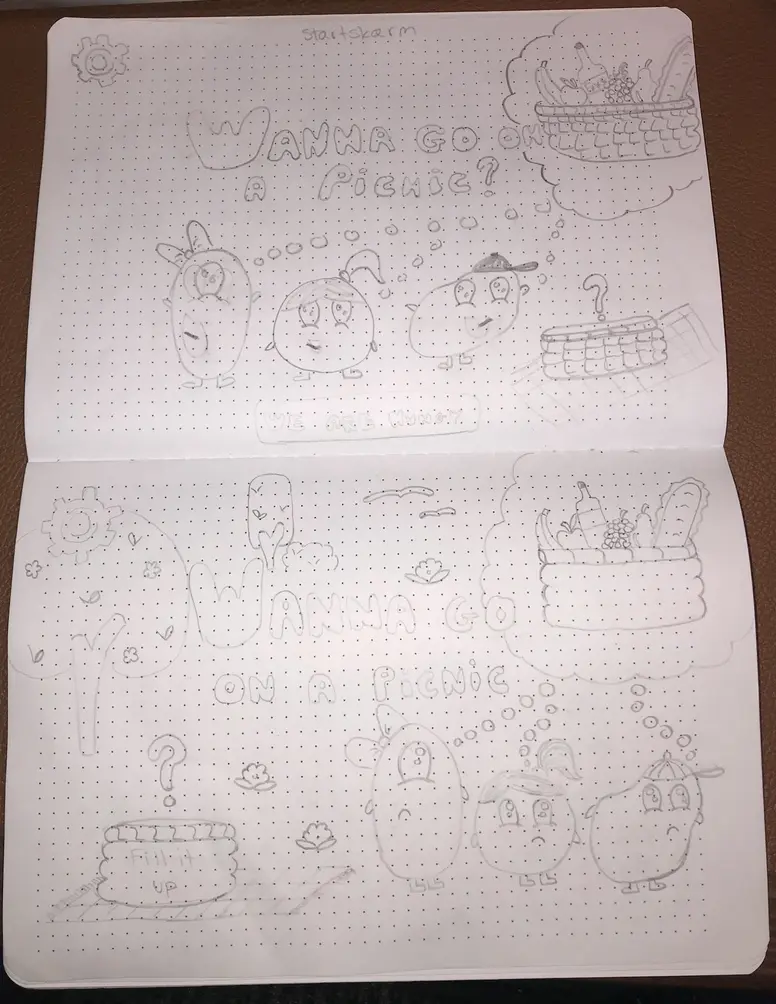 Startskærm
WANNA GO ON
A PiCNiC?
?
WE ARE HUNGRY
WANNA GO
ON A PiCNiC
?
Fill it
UP